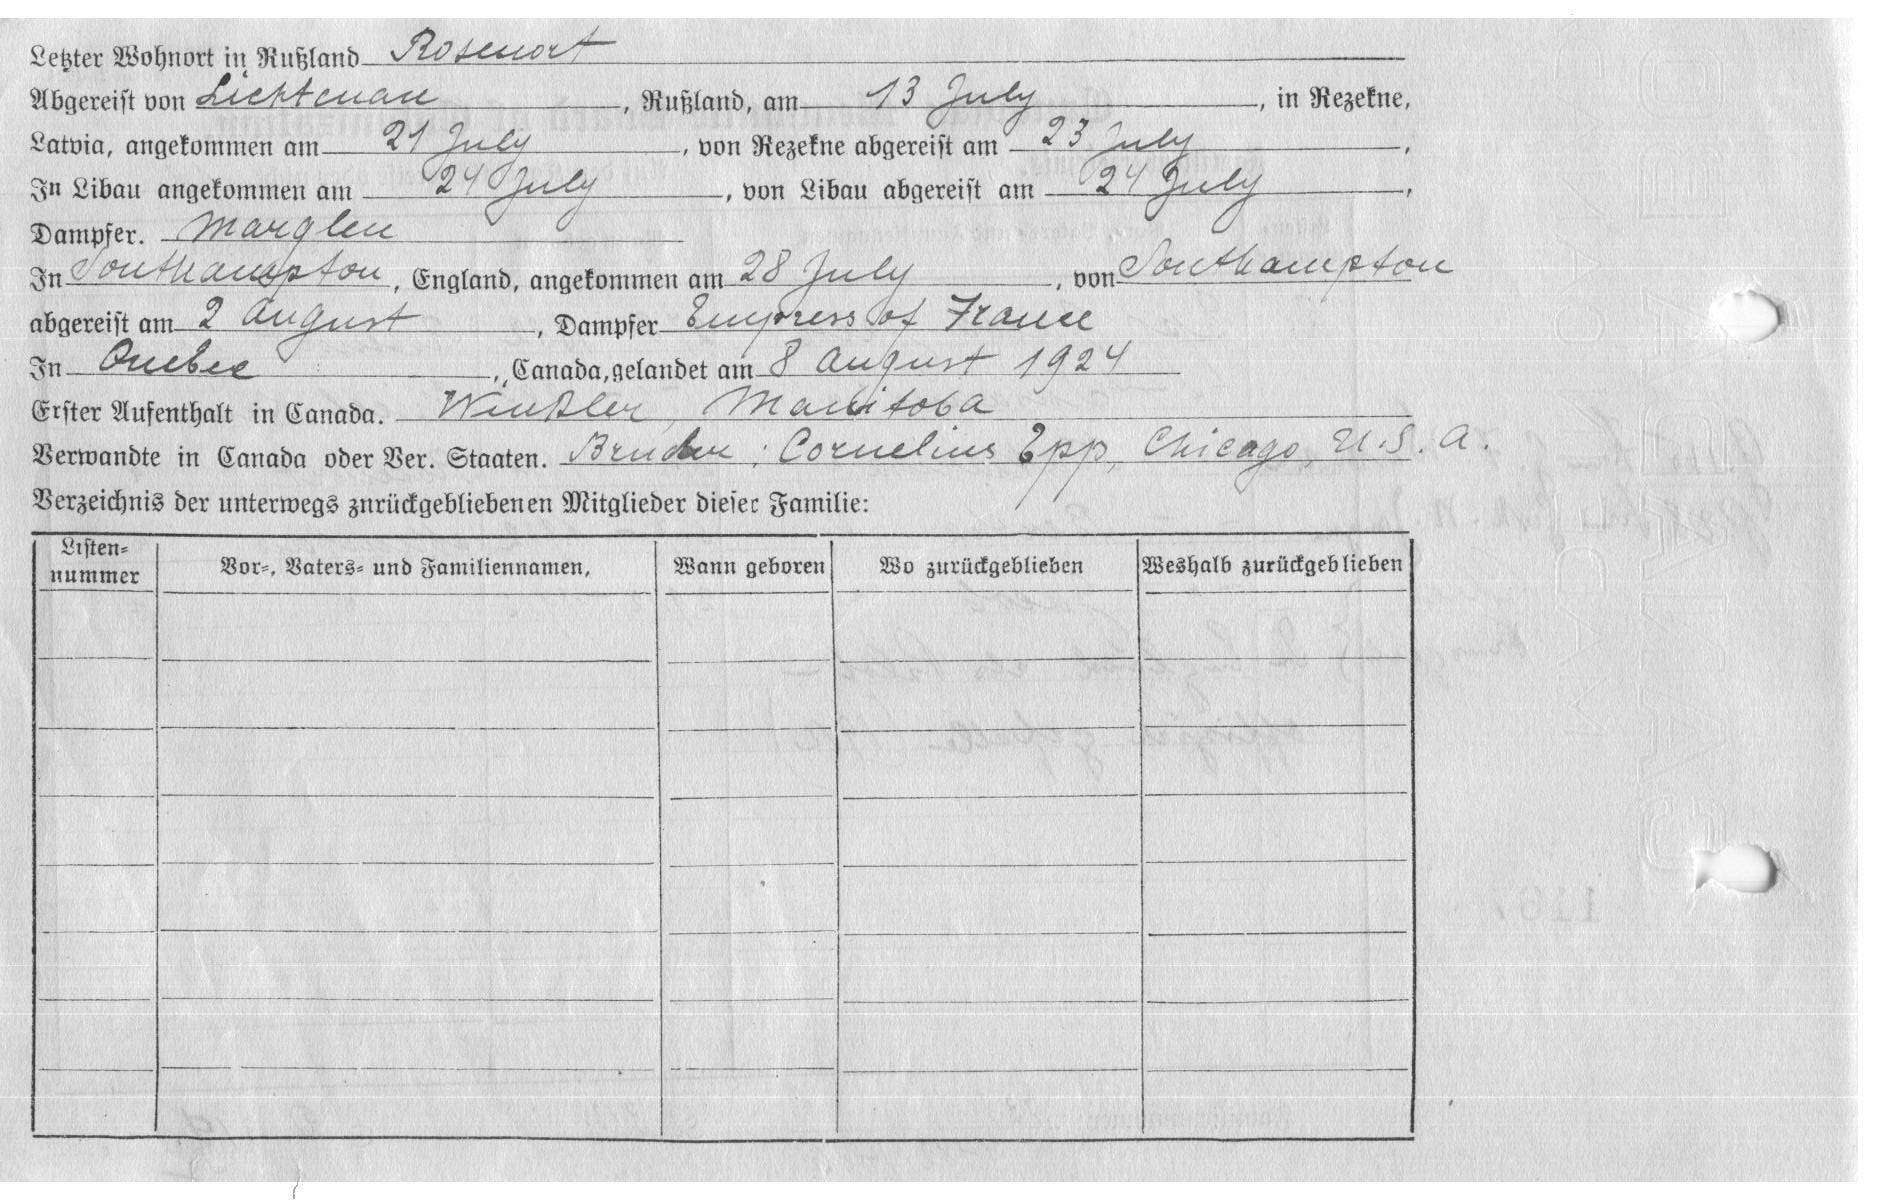 Letzter Wohnort in Rußland Rosenort
Abgereist von Lichtenau, Rußland, am 13 July, in Rezekne,
Latvia, angekommen am 21 July, von Rezekne abgereist am 23 July,
In Libau angekommen am 24 July, von Libau abgereist am 24 July,
Dampfer. Marglen
In Southampton, England, angekommen am 28 July, von Southampton
abgereist am 2 August, Dampfer Empress of France
In Quebec, Canada, gelandet am 8 August 1924
Erster Aufenthalt in Canada. Winkler, Manitoba
Verwandte in Canada oder Ver. Staaten. Bruder: Cornelius Epp, Chicago, U.S.A.
Verzeichnis der unterwegs znrückgebliebenen Mitglieder dieser Familie:
Listen-
nummer
Vor-, Vaters- und Familiennamen,
Wann geboren
Wo zurückgeblieben
Weshalb zurückgeblieben
1167